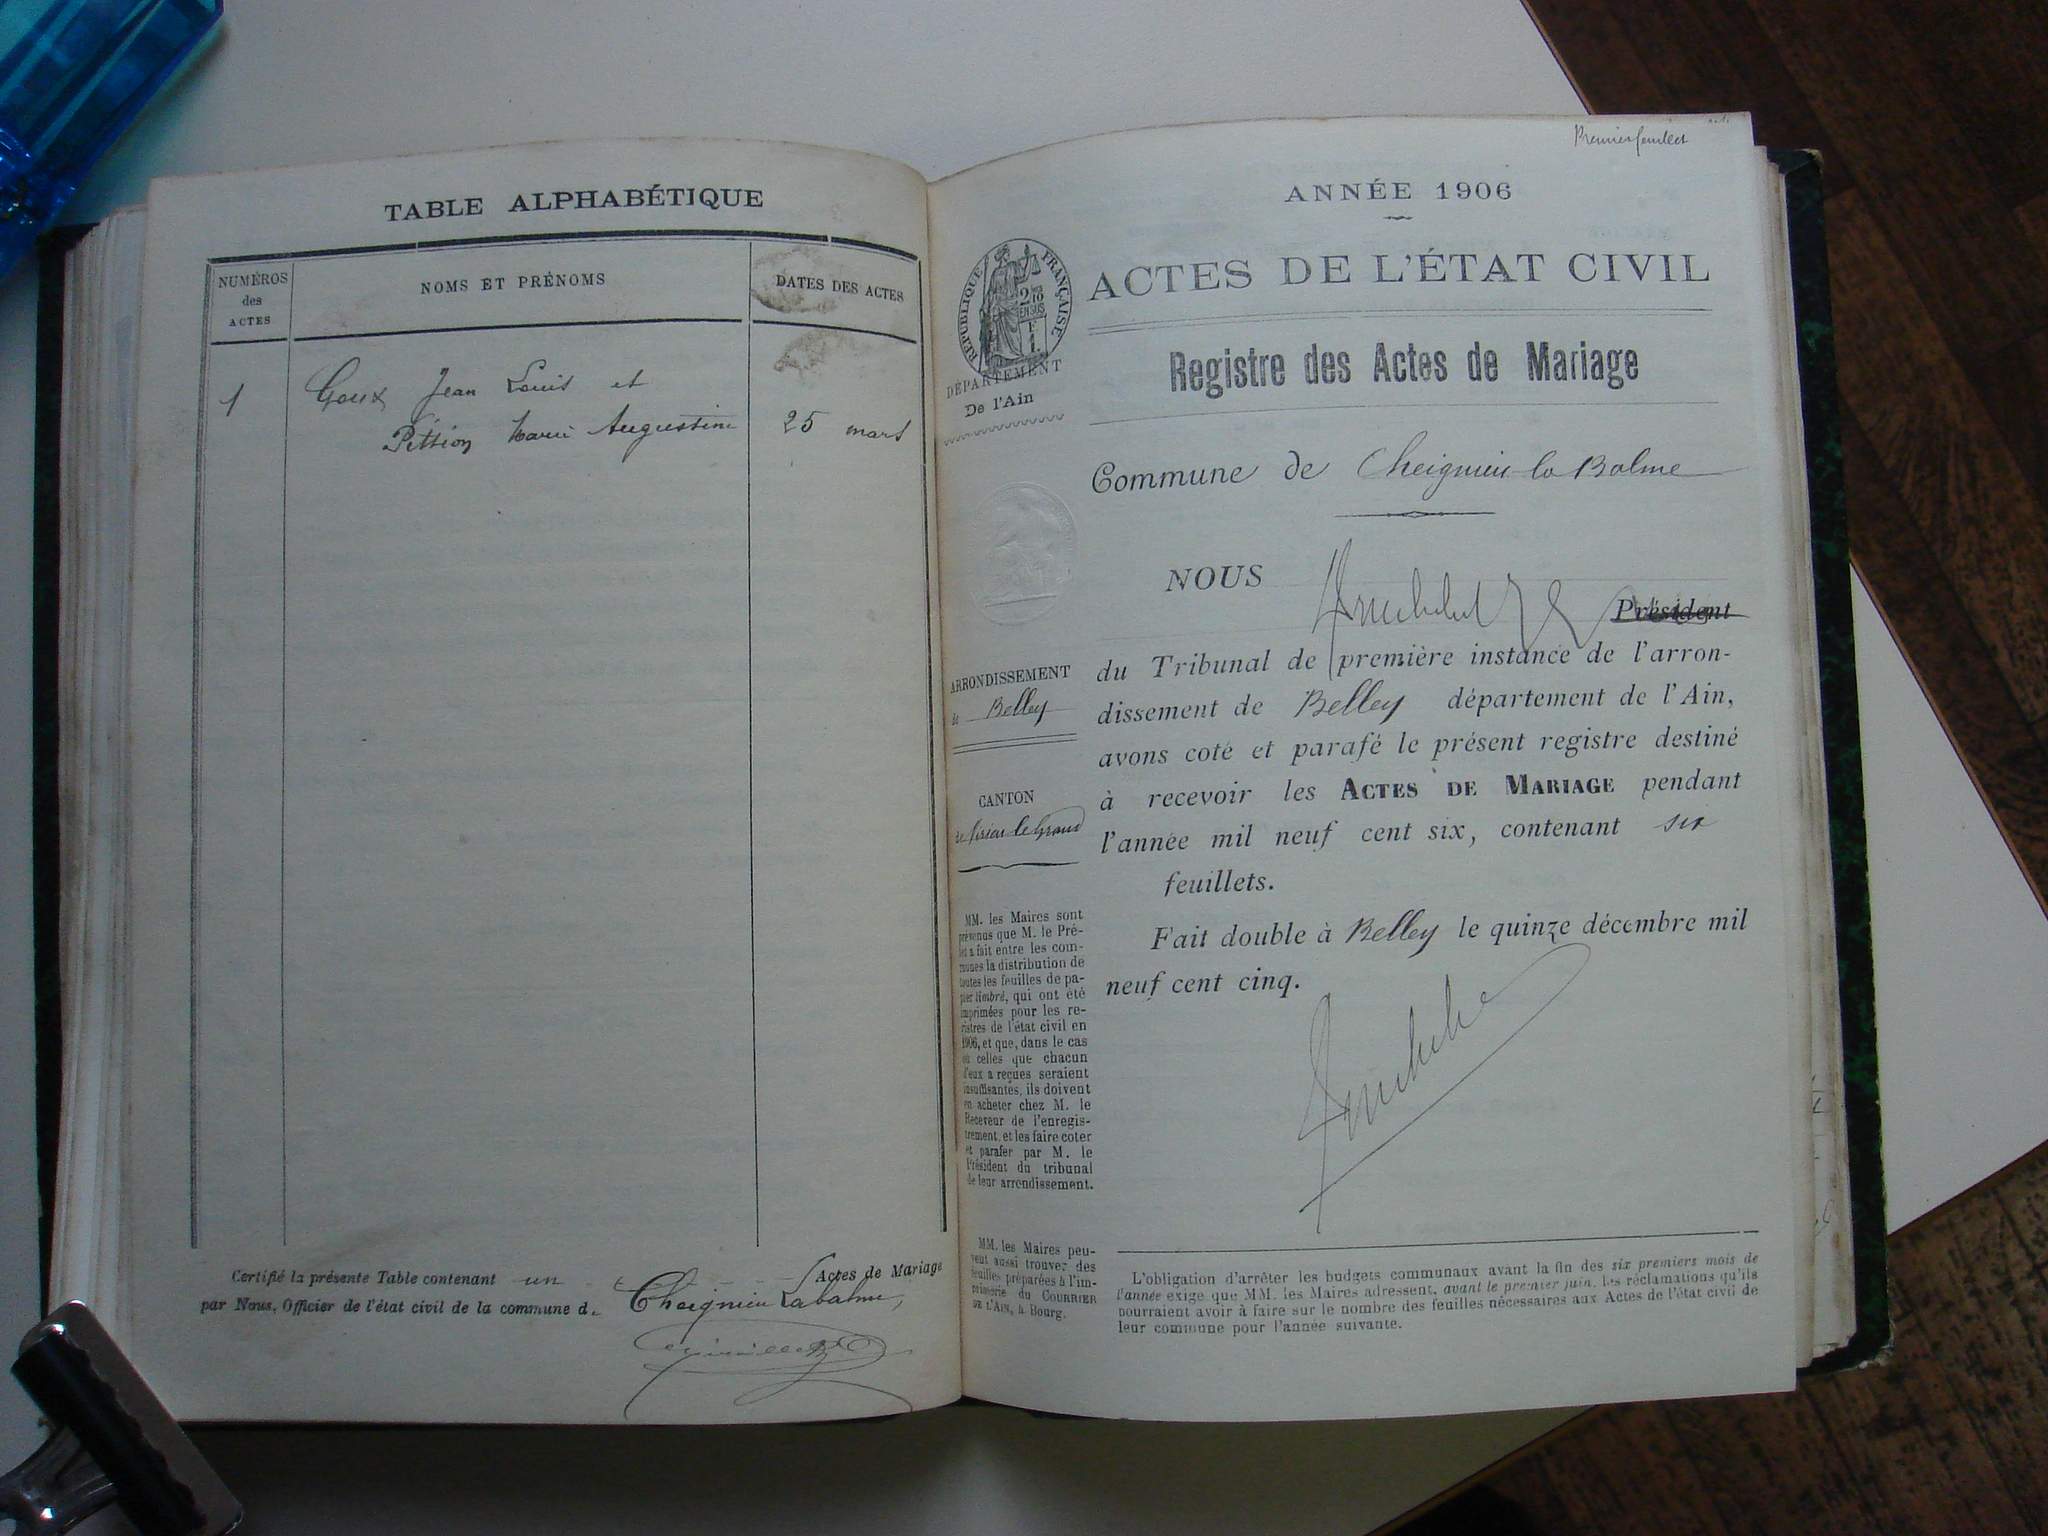 TABLE ALPHABÉTIQUE
NUMÉROS
des
ACTES
NOMS ET PRÉNOMS
DATES DES ACTES
1
Goux Jean Louis et
Pettion Marie Augustine
25 mars
Certifié la présente Table contenant un Actes de Mariage
par Nous, Officier de l'état civil de la commune d. Cheignieu Labalme,
Premier feuillet
ANNÉE 1906
RÉPUBLIQUE FRANÇAISE
DÉPARTEMENT
De l'Ain
ACTES DE L'ÉTAT CIVIL
Registre des Actes de Mariage
Commune de Cheignieu la Balme
NOUS
Président
du Tribunal de première instance de l'arron-
dissement de Belley département de l'Ain,
avons coté et parafé le présent registre destiné
à recevoir les ACTES DE MARIAGE pendant
l'année mil neuf cent six, contenant six
feuillets.
Fait double à Belley le quinze décembre mil
neuf cent cinq.
ARRONDISSEMENT
de Belley
CANTON
de Virieu le Grand
MM. les Maires sont
prévenus que M. le Pré-
fet a fait entre les com-
munes la distribution de
toutes les feuilles de pa-
pier timbré, qui ont été
imprimées pour les re-
gistres de l'état civil en
1906, et que, dans le cas
où celles que chacun
d'eux a reçues seraient
insuffisantes, ils doivent
en acheter chez M. le
Receveur de l'enregis-
trement, et les faire coter
et parafer par M. le
Président du tribunal
de leur arrondissement.
MM. les Maires peu-
vent aussi trouver des
feuilles préparées à l'im-
primerie du COURRIER
DE L'AIN, à Bourg.
L'obligation d'arrêter les budgets communaux avant la fin des six premiers mois de
l'année exige que MM. les Maires adressent, avant le premier juin, les réclamations qu'ils
pourraient avoir à faire sur le nombre des feuilles nécessaires aux Actes de l'état civil de
leur commune pour l'année suivante.